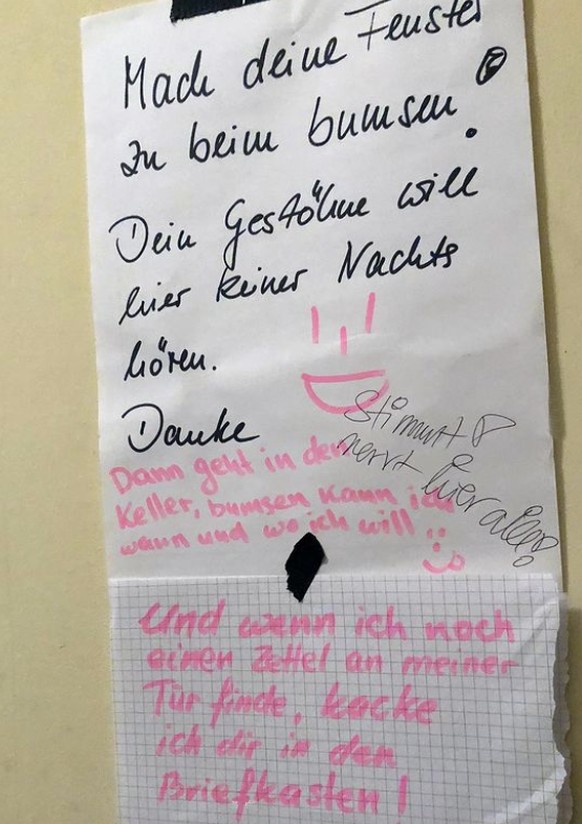 Mach deine Fenster
zu beim bumsen!
Dein Gestöhne will
hier keiner Nachts
hören.
Danke
Stimmt!
nervt hier alle!
Dann geht in den
Keller, bumsen kann ich
wann und wo ich will
Und wenn ich noch
einen Zettel an meiner
Tür finde, kacke
ich dir in den
Briefkasten!